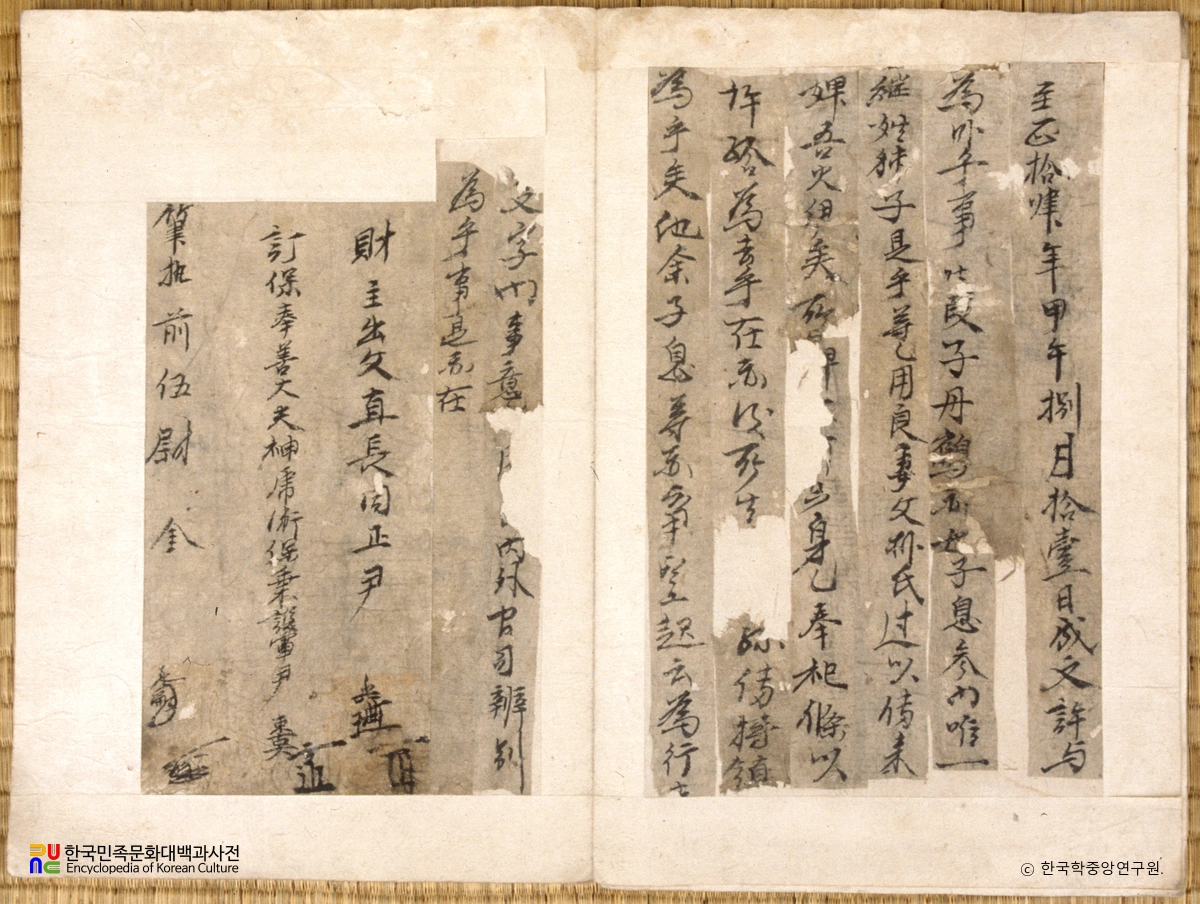 至正拾肆年甲午捌月拾壹日成文許与
為臥乎事叱段子丹鶴亦女子息參內唯一
継姓妹子是乎等乙用良妻父孫氏过以傳来
婢吾火伊矣所 身乙奉祀條以
許給為去乎在亦後所生 傳持鎮
為乎矣他余子息等亦 起云為行
文字內事意 內外官司辨別
為乎事是亦在
財主出父直長同正尹
訂保奉善大夫神虎衛保乗護軍尹
筆执前伍尉金
한국민족문화대백과사전
Encyclopedia of Korean Culture
© 한국학중앙연구원.